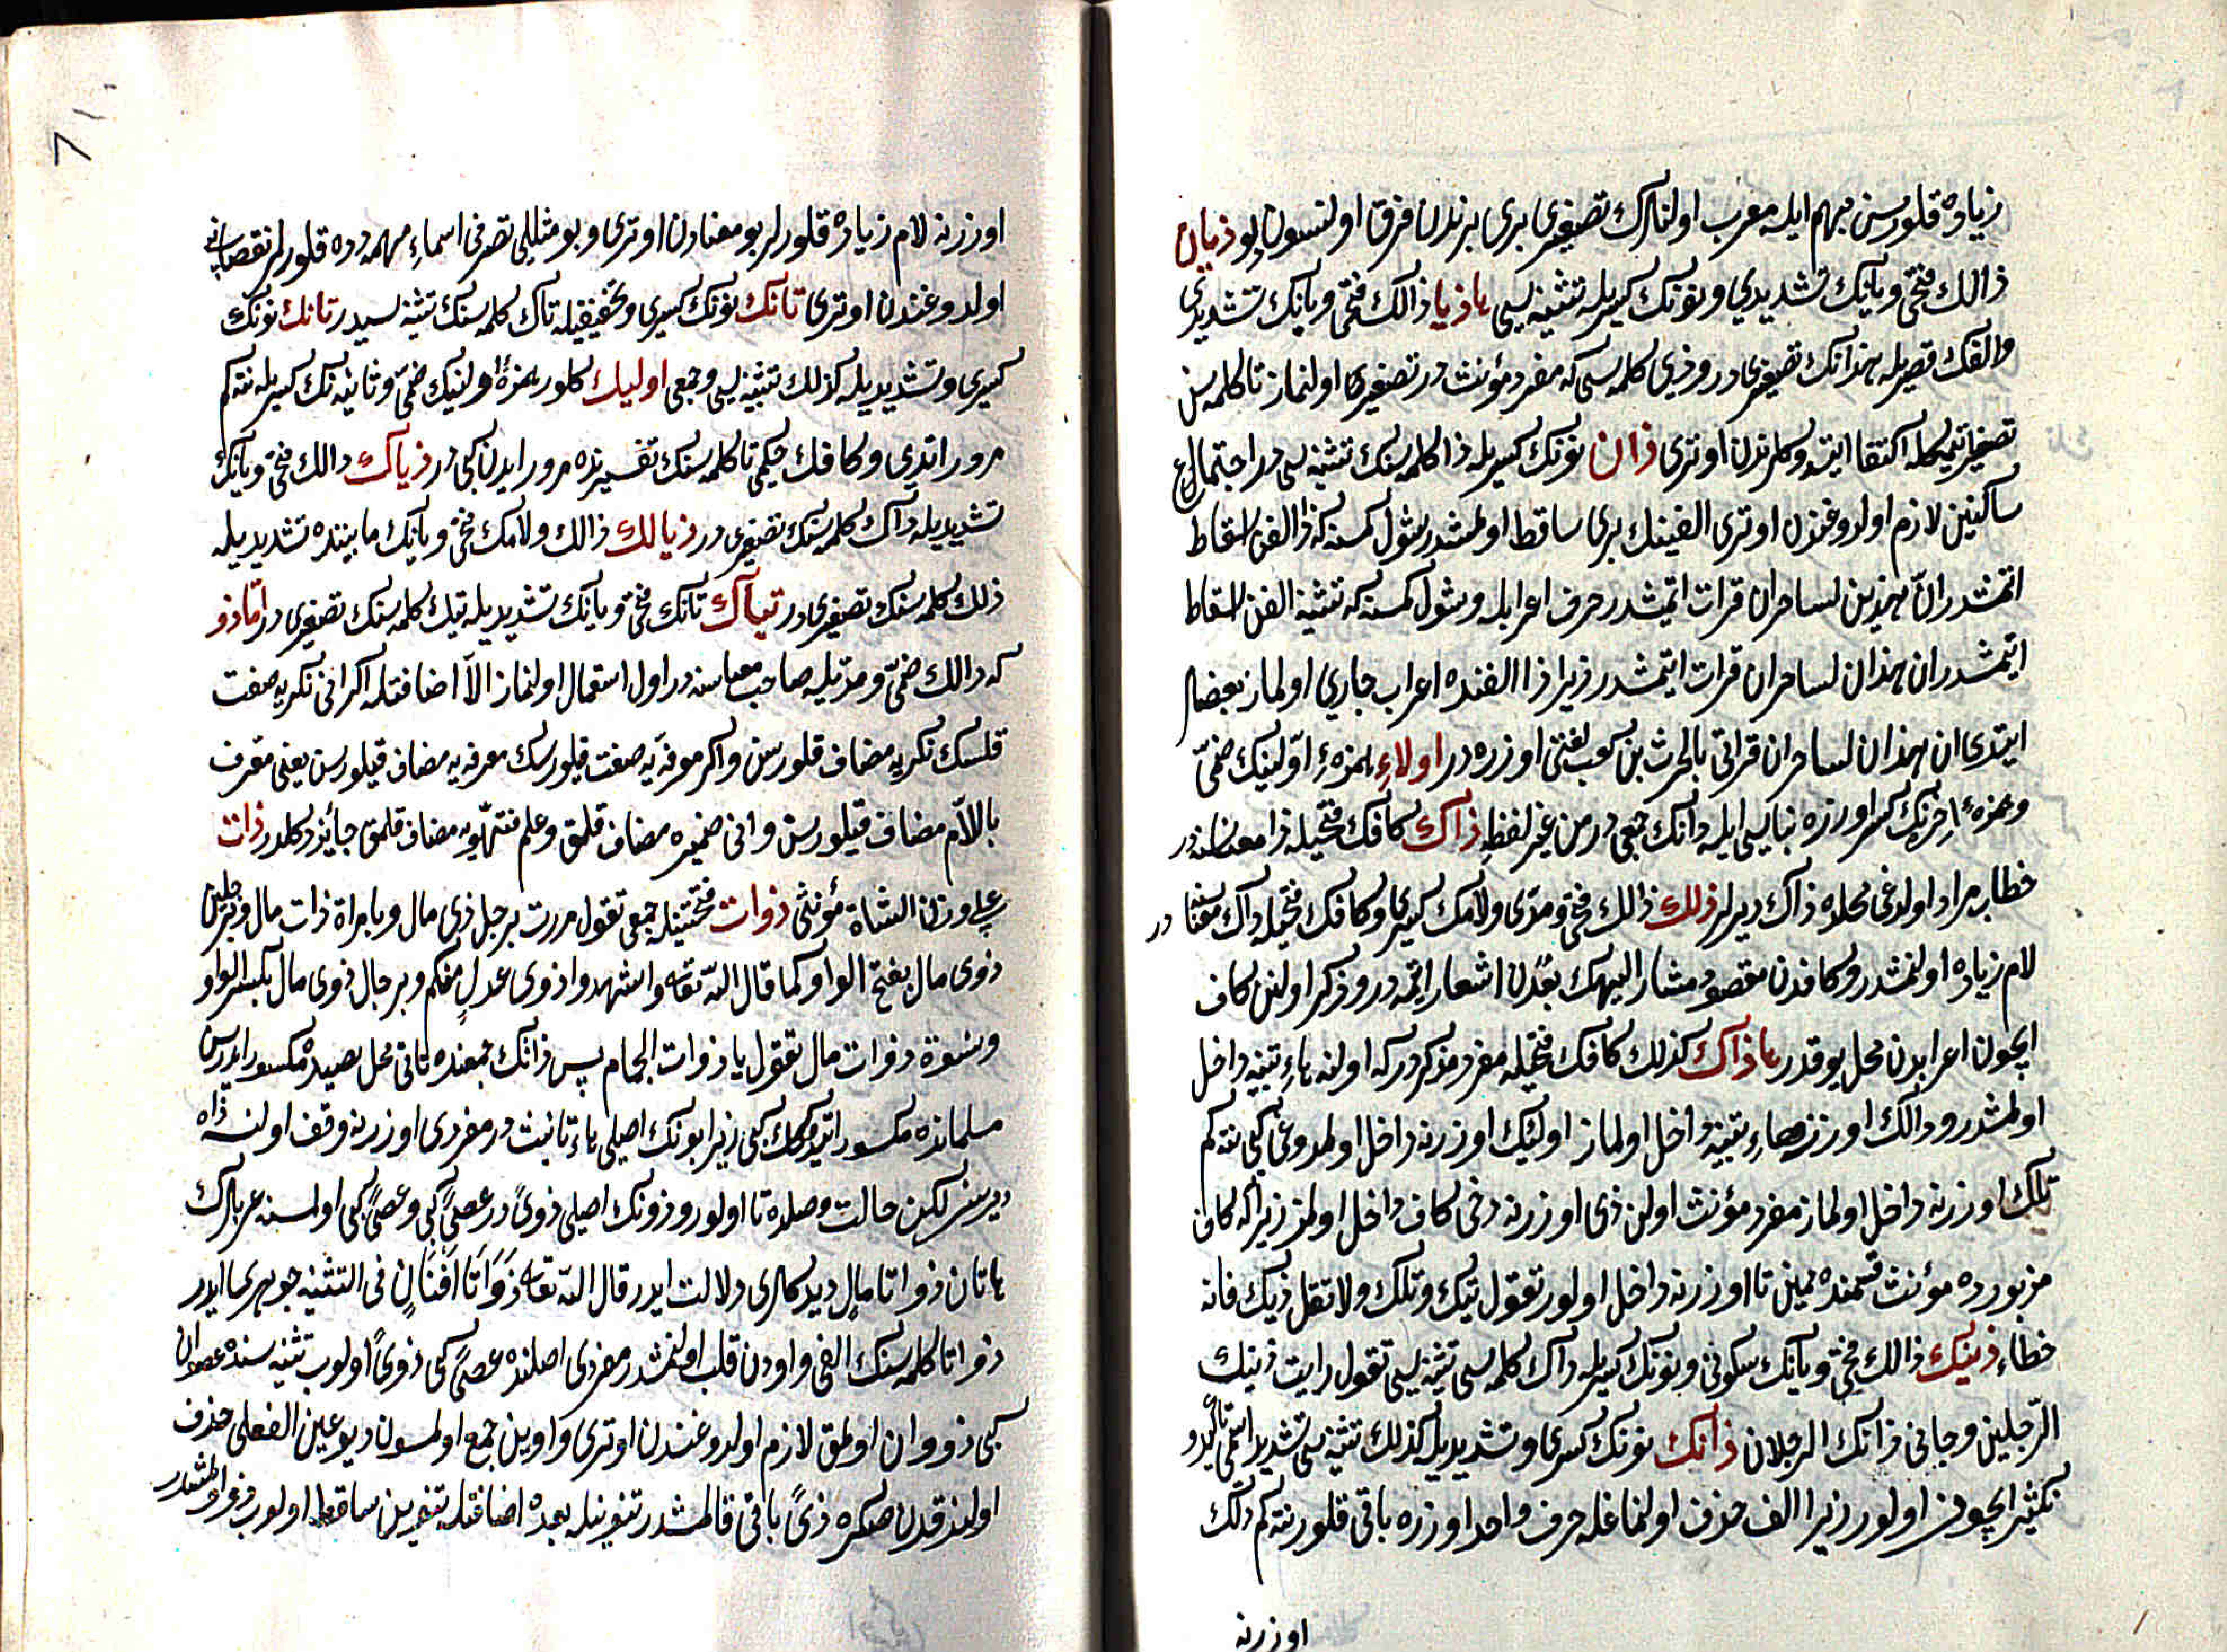 زیاده قلورسن مبهم ایله معرب اولنلرك تصغیری بری برندن فرق اولنسون دیو ذیان
ذالك فتحی ویانك تشدیدی ونونك کسریله تثنیه سی هاذیا ذالك فتحی ویانك تشدیدی
والفك قصریله هذانك تصغیریدر وذی کلمه سی که مفرد مؤنث در تصغیری اولنماز تا کلمه سن
تصغیر اتمکله اکتفا ایتدوکلرندن اوتری ذان نونك کسریله ذا کلمه سنك تثنیه سی در اجتماع
ساکنین لازم اولدوغندن اوتری الفینك بری ساقط اولمشدر شول کمسنه که ذا الفن اسقاط
اتمشدر ان هذین لساحران قرات اتمشدر حرف اعرابله وشول کمسنه که تثنیه الفن اسقاط
ایتمشدر ان هذان لساحران قرات ایتمشدر زیرا ذا الفنده اعراب جاری اولماز بعضلر
ایتدی ان هذان لساحران قراتی بالحرث بن کعب لغتی اوزره در اولاء همزهء اولینك ضمی
وهمزهء اخرنك کسر اوزره بناسی ایله ذانك جمعی در من غیر لفظه ذاك کافك فتحیله ذا معناسنه در
خطاب مراد اولدغی محلده ذاك دیرلر ذلك ذالك فتحی ومدی ولامك کسری وکافك فتحیله ذاك معناسنه در
لام زیاده اولنمشدر وکافدن مقصود مشار الیهك بعدن اشعار ایتمه در وذکر اولنن کاف
ایچون اعرابدن محل یوقدر هاذاك کذلك کافك فتحیله مفرد مذکر در که اولنه هاء تنبیه داخل
اولمشدر وذالك اوزرنه هاء تنبیه داخل اولماز اولئك اوزرنه داخل اولمدوغی کبی نته کم
تلك اوزرنه داخل اولماز مفرد مؤنث اولن ذی اوزرنه دخی کاف داخل اولمز زیرا که کاف
مزبورده مؤنث قسمنده همین تا اوزرنه داخل اولور تقول تیك وتلك ولا تقل ذیك فانه
خطاء ذینك ذالك فتحی ویانك سکونی ونونك کسریله ذاك کلمه سی تثنیه سی تقول رایت ذینك
الرجلین وجانی ذانك الرجلان ذانك نونك کسری وتشدیدیله کذلك تثنیه سی تشدید اسمی تاکید و
تکثیر ایچون اولور زیرا الف حذف اولنماغله حرف واحد اوزره باقی قلور نته کم ذلك
اوزرنه
اوزرنه لام زیاده قلورلر بو معنادن اوتری وبو مثللی تصرفی اسماء مبهمه ده قلورلر نقصانی
اولدوغندن اوتری تانك نونك کسری وتخفیفیله تاك کلمه سنك تثنیه سیدر تانك نونك
کسری وتشدیدیله کذلك تثنیه سی وجمعی اولیك کلور همزهء اولنیك ضمی وثانیه نك کسریله نته کم
مرور اتدی وکافك حکمی تا کلمه سنك تفسیرنده مرور ایدن کبی در ذیاك ذالك فتحی ویانك
تشدیدیله ذاك کلمه سنك تصغیری در ذیالك ذالك ولامك فتحی ویانك مابیننده تشدیدیله
ذلك کلمه سنك تصغیری در تیاك تانك فتحی ویانك تشدیدیله تیك کلمه سنك تصغیری در اما ذو
که ذالك ضمی ومدیله صاحب معناسنه در اول استعمال اولنماز الا اضافتله اکر انی نکریه صفت
قلسك نکریه مضاف قلورسن واکر معرفه یه صفت قیلورسك معرفه یه مضاف قیلورسن یعنی معرف
باللام مضاف قیلورسن وانی ضمیره مضاف قلمق وعلم مضاف قلمق جائز دکلدر ذات
علی وزن الشاة مؤنثی ذوات فتحتینله جمعی تقول مررت برجل ذی مال وبامراة ذات مال وبرجلین
ذوی مال بفتح الواو کما قال الله تعه واشهدوا ذوی عدل منکم وبرجال ذوی مال بکسر الواو
ونسوة ذوات مال تقول یا ذوات الجمام پس ذاتك جمعنده تانی محل نصبده مکسور ایدرسن
مسلماتده مکسور اتدوکك کبی زیرا بونك اصلی هاء تانیث در مفردی اوزرنه وقف اولنسه ذاه
دیرسن لکن حالت وصلده تا اولور وذونك اصلی ذوی در عصی کبی وعصی کبی اولسنه عربلرك
هاتان ذواتا مال دیدکلری دلالت ایدر قال الله تعه ذواتا افنان فی التثنیه جوهری ایدر
ذواتا کلمه سنك الفی واودن قلب اولنمشدر مفردی اصلنده عصی کبی ذوی اولوب تثنیه سنده عصوان
کبی ذووان اولمق لازم اولدوغندن اوتری واوین جمع اولمسون دیو عین الفعلی حذف
اولندقدن صکره ذی باقی قالمشدر تنوینله بعده اضافتله تنوین ساقط اولوب ذو اولمشدر